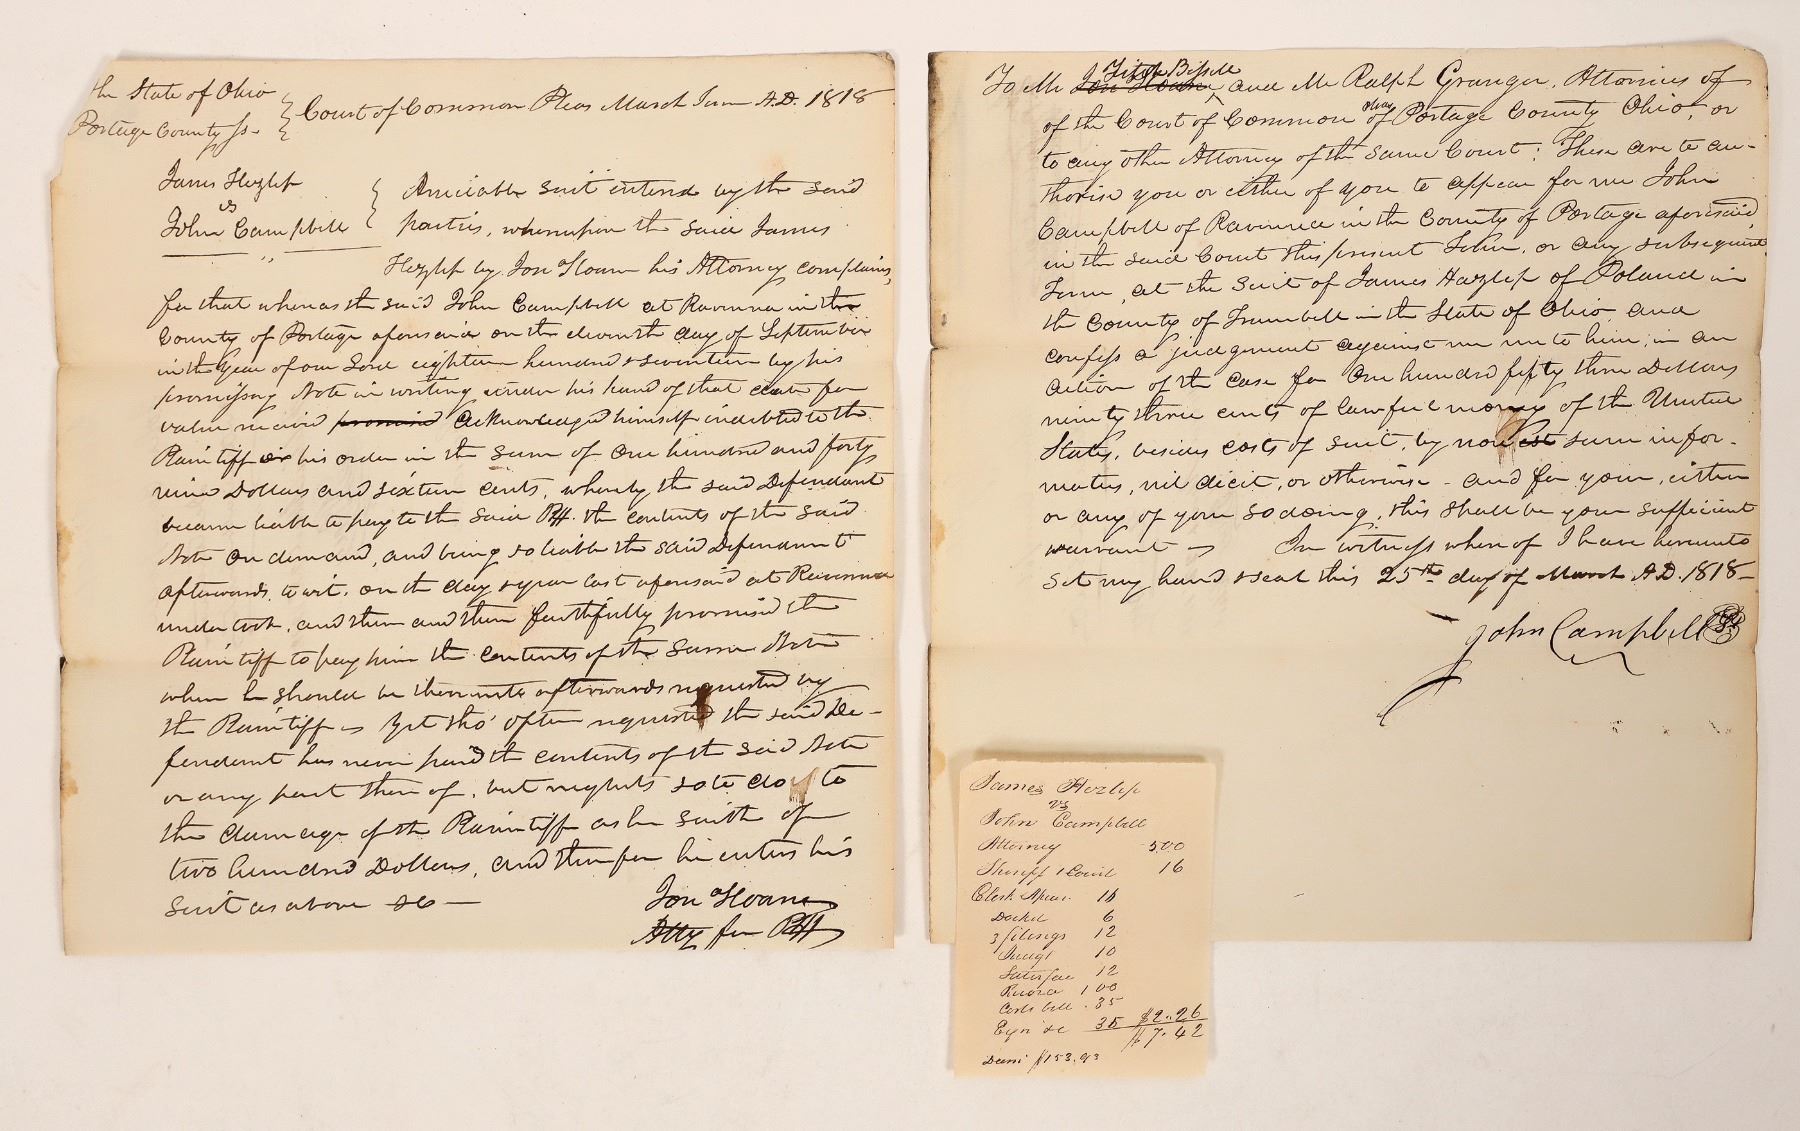 the State of Ohio
Portage County ss.
Court of Common Pleas March Term A.D. 1818
James Hezlep
vs
John Campbell
Amicable suit entered by the said
parties, whereupon the said James
Hezlep by Jon Sloane his Attorney complains,
for that whereas the said John Campbell at Ravenna in the
County of Portage aforesaid on the eleventh day of September
in the year of our Lord eighteen hundred & seventeen by his
promissory Note in writing under his hand of that date for
value received promised acknowledged himself indebted to the
Plaintiff or his order in the sum of one hundred and forty
nine Dollars and sixteen cents, whereby the said Defendant
became liable to pay to the said Plff. the contents of the said
Note on demand, and being so liable the said Defendant
afterwards to wit, on the day & year last aforesaid at Ravenna
undertook, and then and there faithfully promised the
Plaintiff to pay him the contents of the same Note
when he should be thereunto afterwards requested by
the Plaintiff — Yet tho' often requested the said De-
fendant has never paid the contents of the said Note
or any part thereof, but neglects so to do to
the damage of the Plaintiff as he saith of
two hundred Dollars, and therefore he enters his
suit as above &c —
Jon Sloane
Atty for Plff
To Mr Jon Sloane Fitch Bissell and Mr Ralph Granger, Attornies of
of the Court of Common Pleas of Portage County Ohio, or
to any other Attorney of the same Court: These are to au-
thorise you or either of you to appear for me John
Campbell of Ravenna in the County of Portage aforesaid,
in the said Court this present Term, or any subsequent
Term, at the suit of James Hazlep of Poland in
the County of Trumbull in the State of Ohio, and
confess a judgement against me unto him, in an
action of the case for One hundred fifty three Dollars
ninety three cents of lawful money of the United
States, besides costs of suit, by non est sum infor-
matus, nil dicit, or otherwise - and for your, either
or any of your so doing, this shall be your sufficient
warrant — In witness whereof I have hereunto
set my hand & seal this 25th day of March A.D. 1818 —
John Campbell
James Hezlep
vs
John Campbell
Attorney 5.00
Sheriff & Court 16
Clerk Appear. 16
Docket 6
3 filings 12
Judgt 10
Satisfac 12
Record 1 00
Costs bill .35
&c 35 $2.26
$7.42
Dam: $153.93